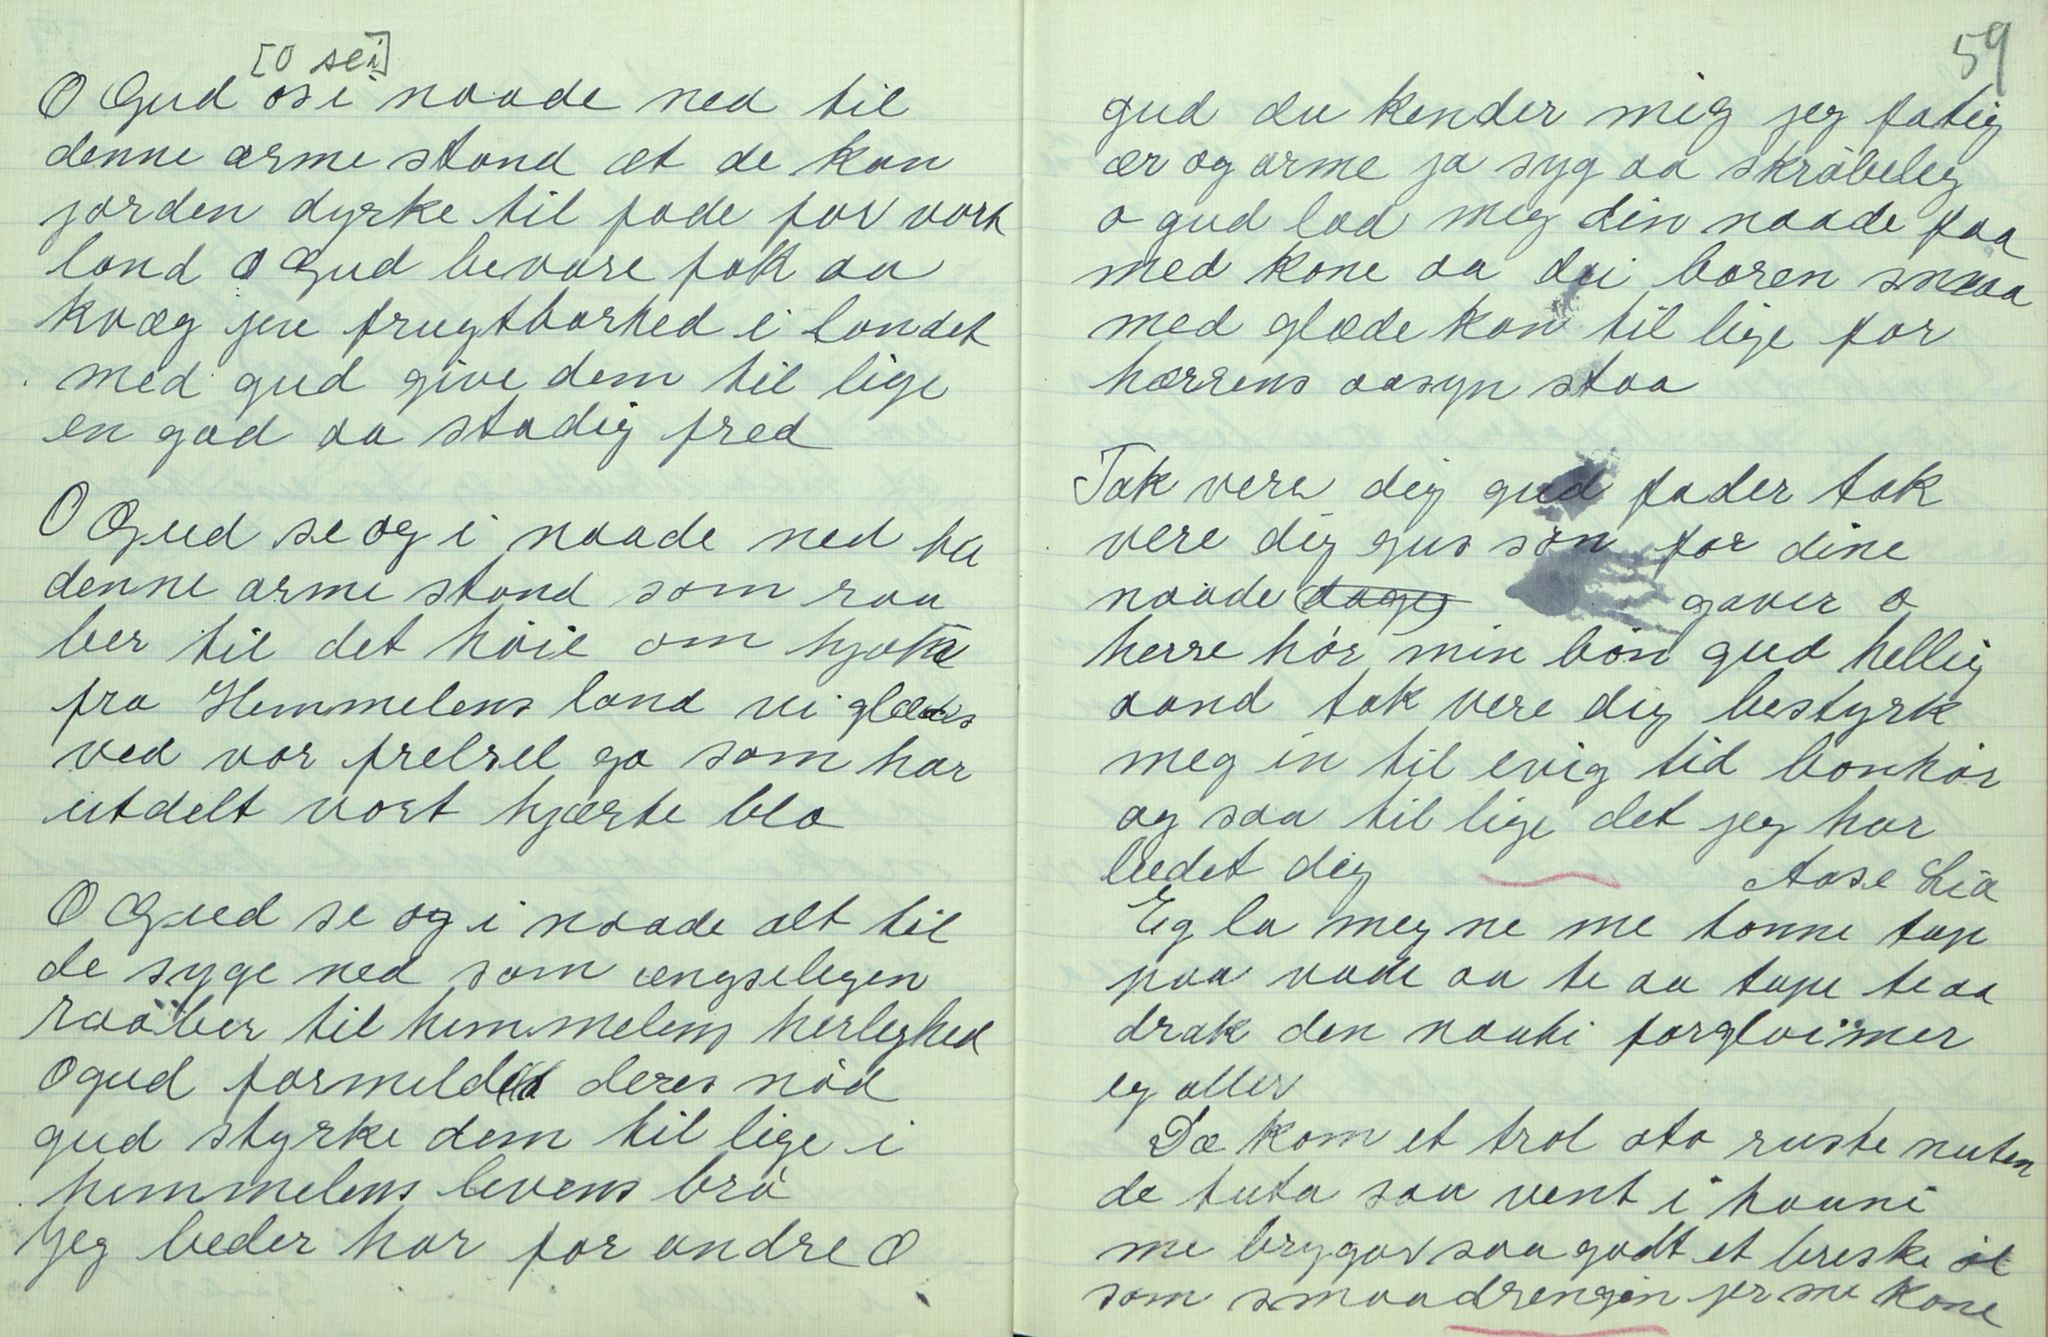 [O sei]
O Gud os i naade ned til
denne arme stand at de kan
jorden dyrke til føde for vort
land O Gud bevare folk aa
kvæg jev frugtbarhed i landet
med gud give dem til lige
en god aa stadig fred
O Gud se og i naade ned til
denne arme stand som raa
ber til det høie om hjælp
fra Hemmelens land vi glædes
ved vor frelsel ga som har
utdelt vort hjærte blo
O Gud se og i naade alt til
de syge ned som ængselegen
raaber til himmelens herleghed
O gud formild deres nød
gud styrke dem til lige i
himmelens levens brø
Jeg beder har for andre O
59
gud du kender mig jeg fatig
ær og arme ja syg aa skrøbeleg
o gud lad meg din naade faa
med kone aa dei boren smaa
med glæde kan til lige for
hærrens aasyn staa
Tak vere dig gud fader tak
vere dig gus søn for dine
naade dage gaver o
herre hør min bøn gud hellig
aand tak vere dig bestyrk
meg in til evig tid bønhør
og saa til lige det jeg har
bedet dig
Aase Lia
Eg la meg ne me tonne tape
paa vade aa te aa tape te aa
drak den naaki forgloimer
eg aller
Dæ kom et trol ota ruste nuten
de tuta saa vent i haani
me brygar saa godt et breske øl
som smaadrengin jer me kone